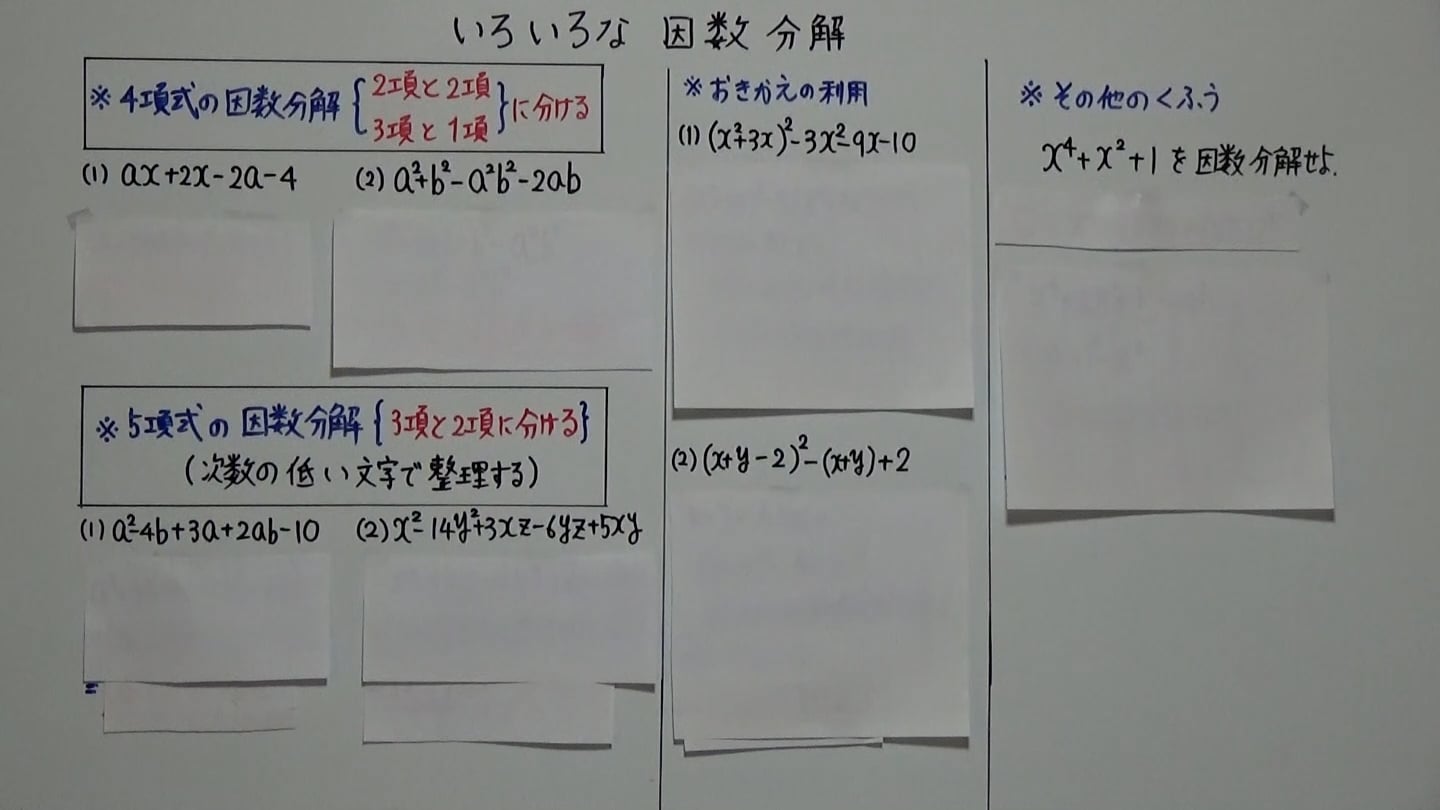 いろいろな 因数分解
※ 4項式の因数分解{2項と2項 3項と1項}に分ける
(1) ax+2x-2a-4
(2) a²+b²-a²b²-2ab
※ 5項式の因数分解{3項と2項に分ける}
(次数の低い文字で整理する)
(1) a²-4b+3a+2ab-10
(2) x²-14y²+3xz-6yz+5xy
※ おきかえの利用
(1) (x²+3x)²-3x²-9x-10
(2) (x+y-2)²-(x+y)+2
※ その他のくふう
x⁴+x²+1 を因数分解せよ.